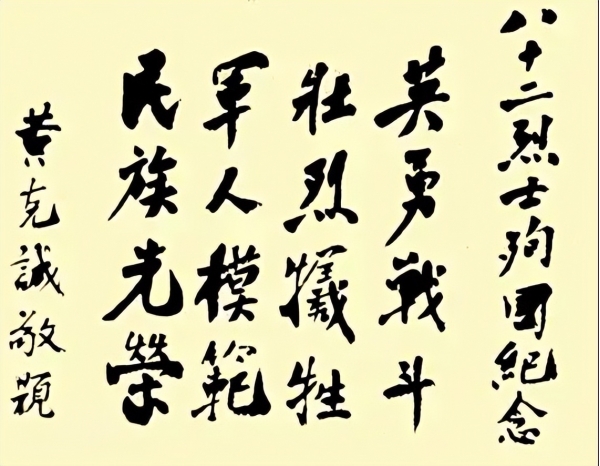 八十二烈士殉国紀念
英勇戰斗
壮烈犧牲
軍人模範
民族光榮
黄克誠敬題